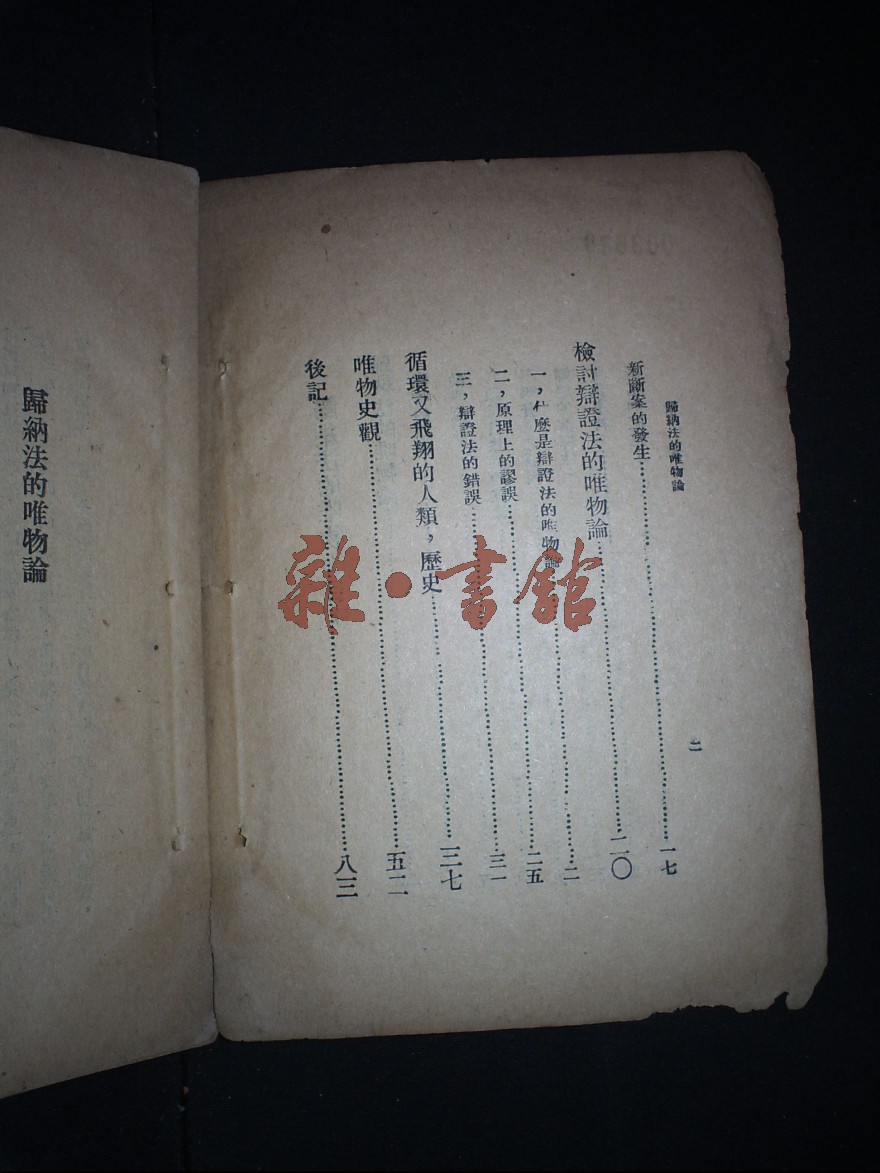 歸納法的唯物論
二
新斷案的發生……一七
檢討辯證法的唯物論……二〇
一，什麼是辯證法的唯物論……二
二，原理上的謬誤……二五
三，辯證法的錯誤……三一
循環又飛翔的人類，歷史……三七
唯物史觀……五二
後記……八三
歸納法的唯物論
雜·書館